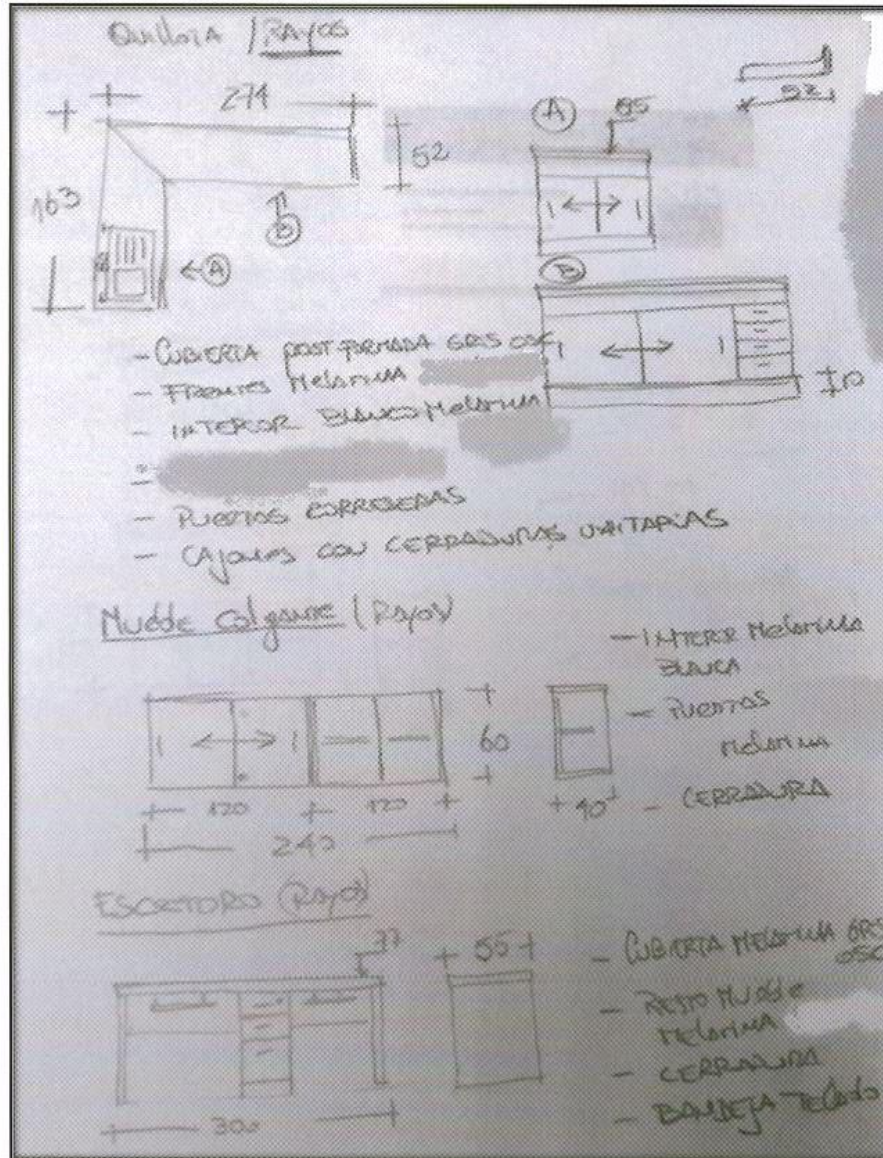 Quillota / RAYOS
274
52
163
B
A
A
85
52
B
10
- CUBIERTA POST FORMADA GRIS OSC
- FRENTES MELAMINA
- INTERIOR BLANCO MELAMINA
- PUERTAS CORREDERAS
- CAJONES CON CERRADURAS UNITARIAS
Mueble Colgante (Rayos)
60
120
120
240
40
- INTERIOR MELAMINA
BLANCA
- PUERTAS
MELAMINA
- CERRADURA
ESCRITORIO (Rayos)
77
55
300
- CUBIERTA MELAMINA GRIS
OSC
- RESTO MUEBLE
MELAMINA
- CERRADURA
- BANDEJA TECLADO